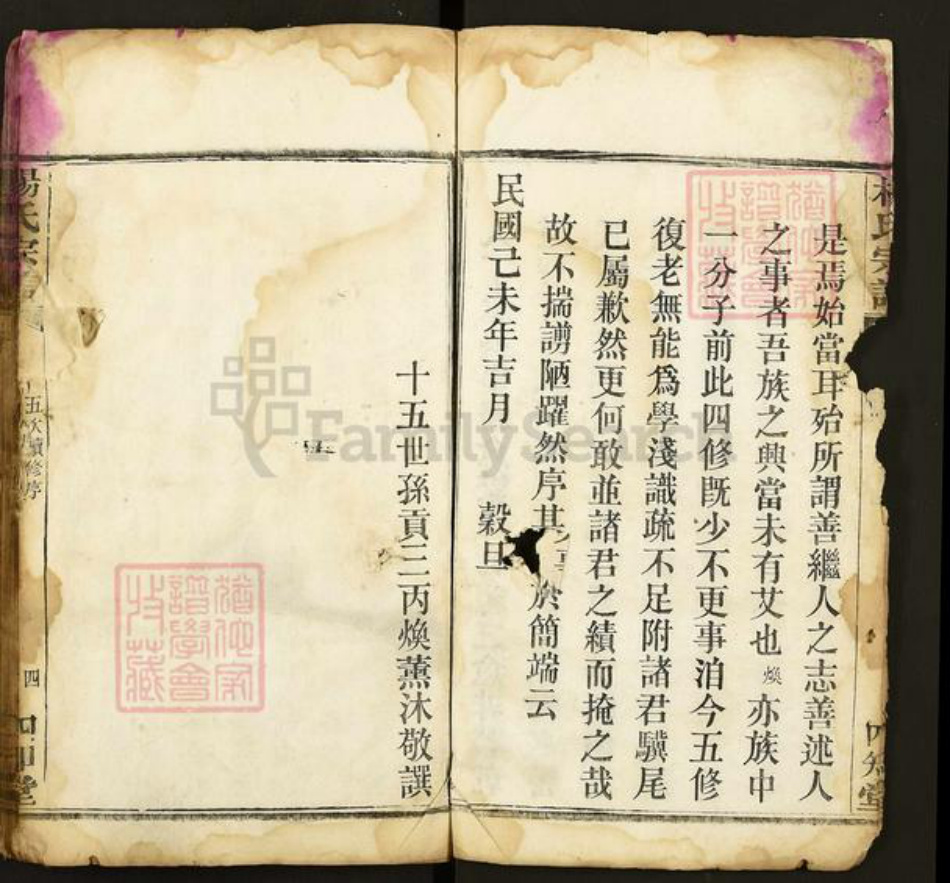 楊氏宗譜
是焉始當耳殆所謂善繼人之志善述人
之事者吾族之興當未有艾也煥亦族中
一分子前此四修既少不更事洎今五修
復老無能為學淺識疏不足附諸君驥尾
已屬歉然更何敢並諸君之績而掩之哉
故不揣謭陋躍然序其事於簡端云
民國己未年吉月 穀旦
十五世孫貢三丙煥薰沐敬譔
楊氏宗譜
五次續修序
四
四知堂
FamilySearch